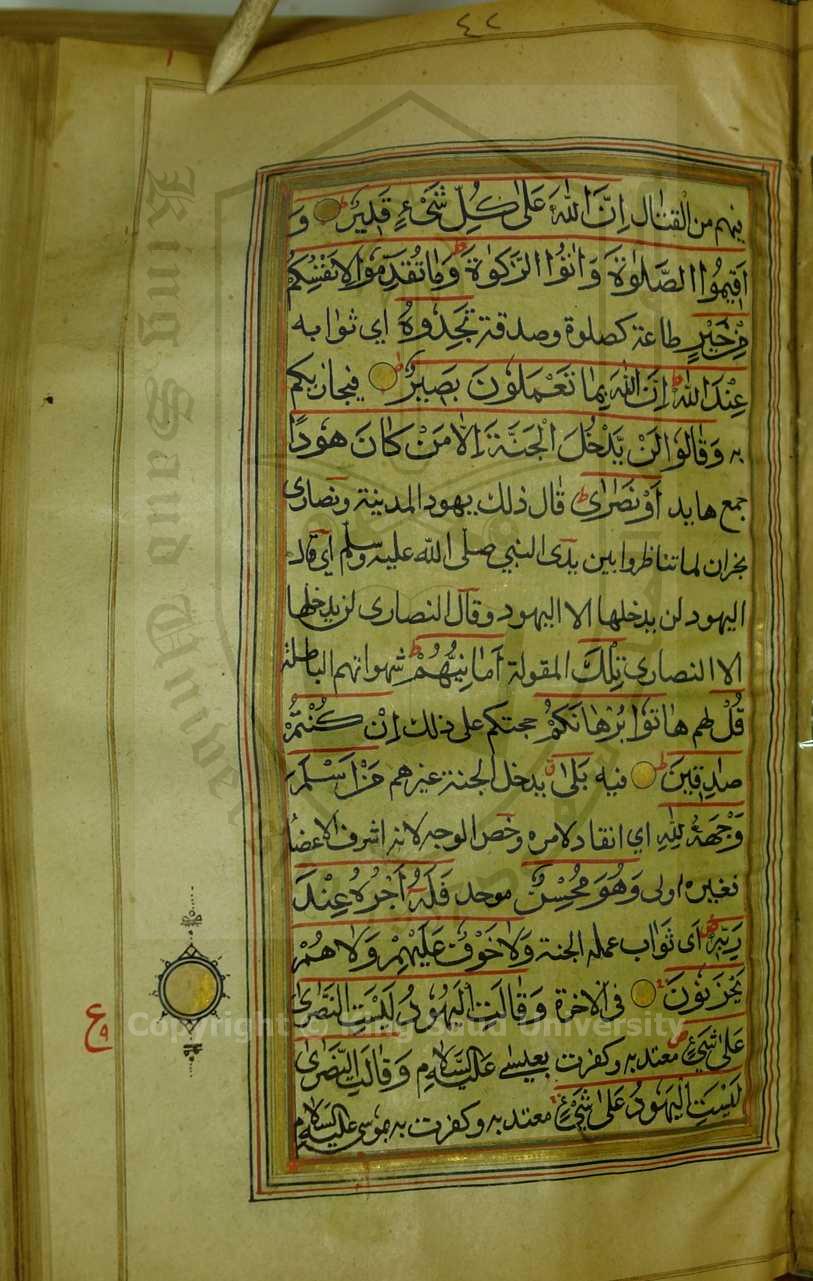 ٤٢
فيهم من القتال اِنَّ اللّٰهَ عَلٰى كُلِّ شَیْءٍ قَدِیْرٌ وَ
اَقِیْمُوا الصَّلٰوةَ وَ اٰتُوا الزَّكٰوةَ وَمَا تُقَدِّمُوْا لِاَنْفُسِكُمْ
مِّنْ خَیْرٍ طاعة كصلوة وصدقة تَجِدُوْهُ اي ثوابه
عِنْدَ اللّٰهِ اِنَّ اللّٰهَ بِمَا تَعْمَلُوْنَ بَصِیْرٌ فيجازيكم
به وَقَالُوْا لَنْ یَّدْخُلَ الْجَنَّةَ اِلَّا مَنْ كَانَ هُوْدًا
جمع هايد اَوْ نَصٰرٰى قال ذلك يهود المدينة ونصارى
نجران لما تناظروا بين يدى النبي صلى الله عليه وسلم اي قال
اليهود لن يدخلها الا اليهود وقال النصارى لن يدخلها
الا النصارى تِلْكَ المقولة اَمَانِیُّهُمْ شهواتهم الباطلة
قُلْ لهم هَاتُوْا بُرْهَانَكُمْ حجتكم على ذلك اِنْ كُنْتُمْ
صٰدِقِیْنَ فيه بَلٰى يدخل الجنة غيرهم مَنْ اَسْلَمَ
وَجْهَهٗ لِلّٰهِ اي انقاد لامره وخص الوجه لانه اشرف الاعضا
فغيره اولى وَهُوَ مُحْسِنٌ موحد فَلَهٗ اَجْرُهٗ عِنْدَ
رَبِّهٖ اي ثواب عمله الجنة وَلَا خَوْفٌ عَلَیْهِمْ وَلَا هُمْ
یَحْزَنُوْنَ فى الاخرة وَقَالَتِ الْیَهُوْدُ لَیْسَتِ النَّصٰرٰى
عَلٰى شَیْءٍ معتد به وكفرت بعيسى عليه السلام وَقَالَتِ النَّصٰرٰى
لَیْسَتِ الْیَهُوْدُ عَلٰى شَیْءٍ معتد به وكفرت به موسى عليه السلام
ع
٩
King Saud University
Copyright © King Saud University